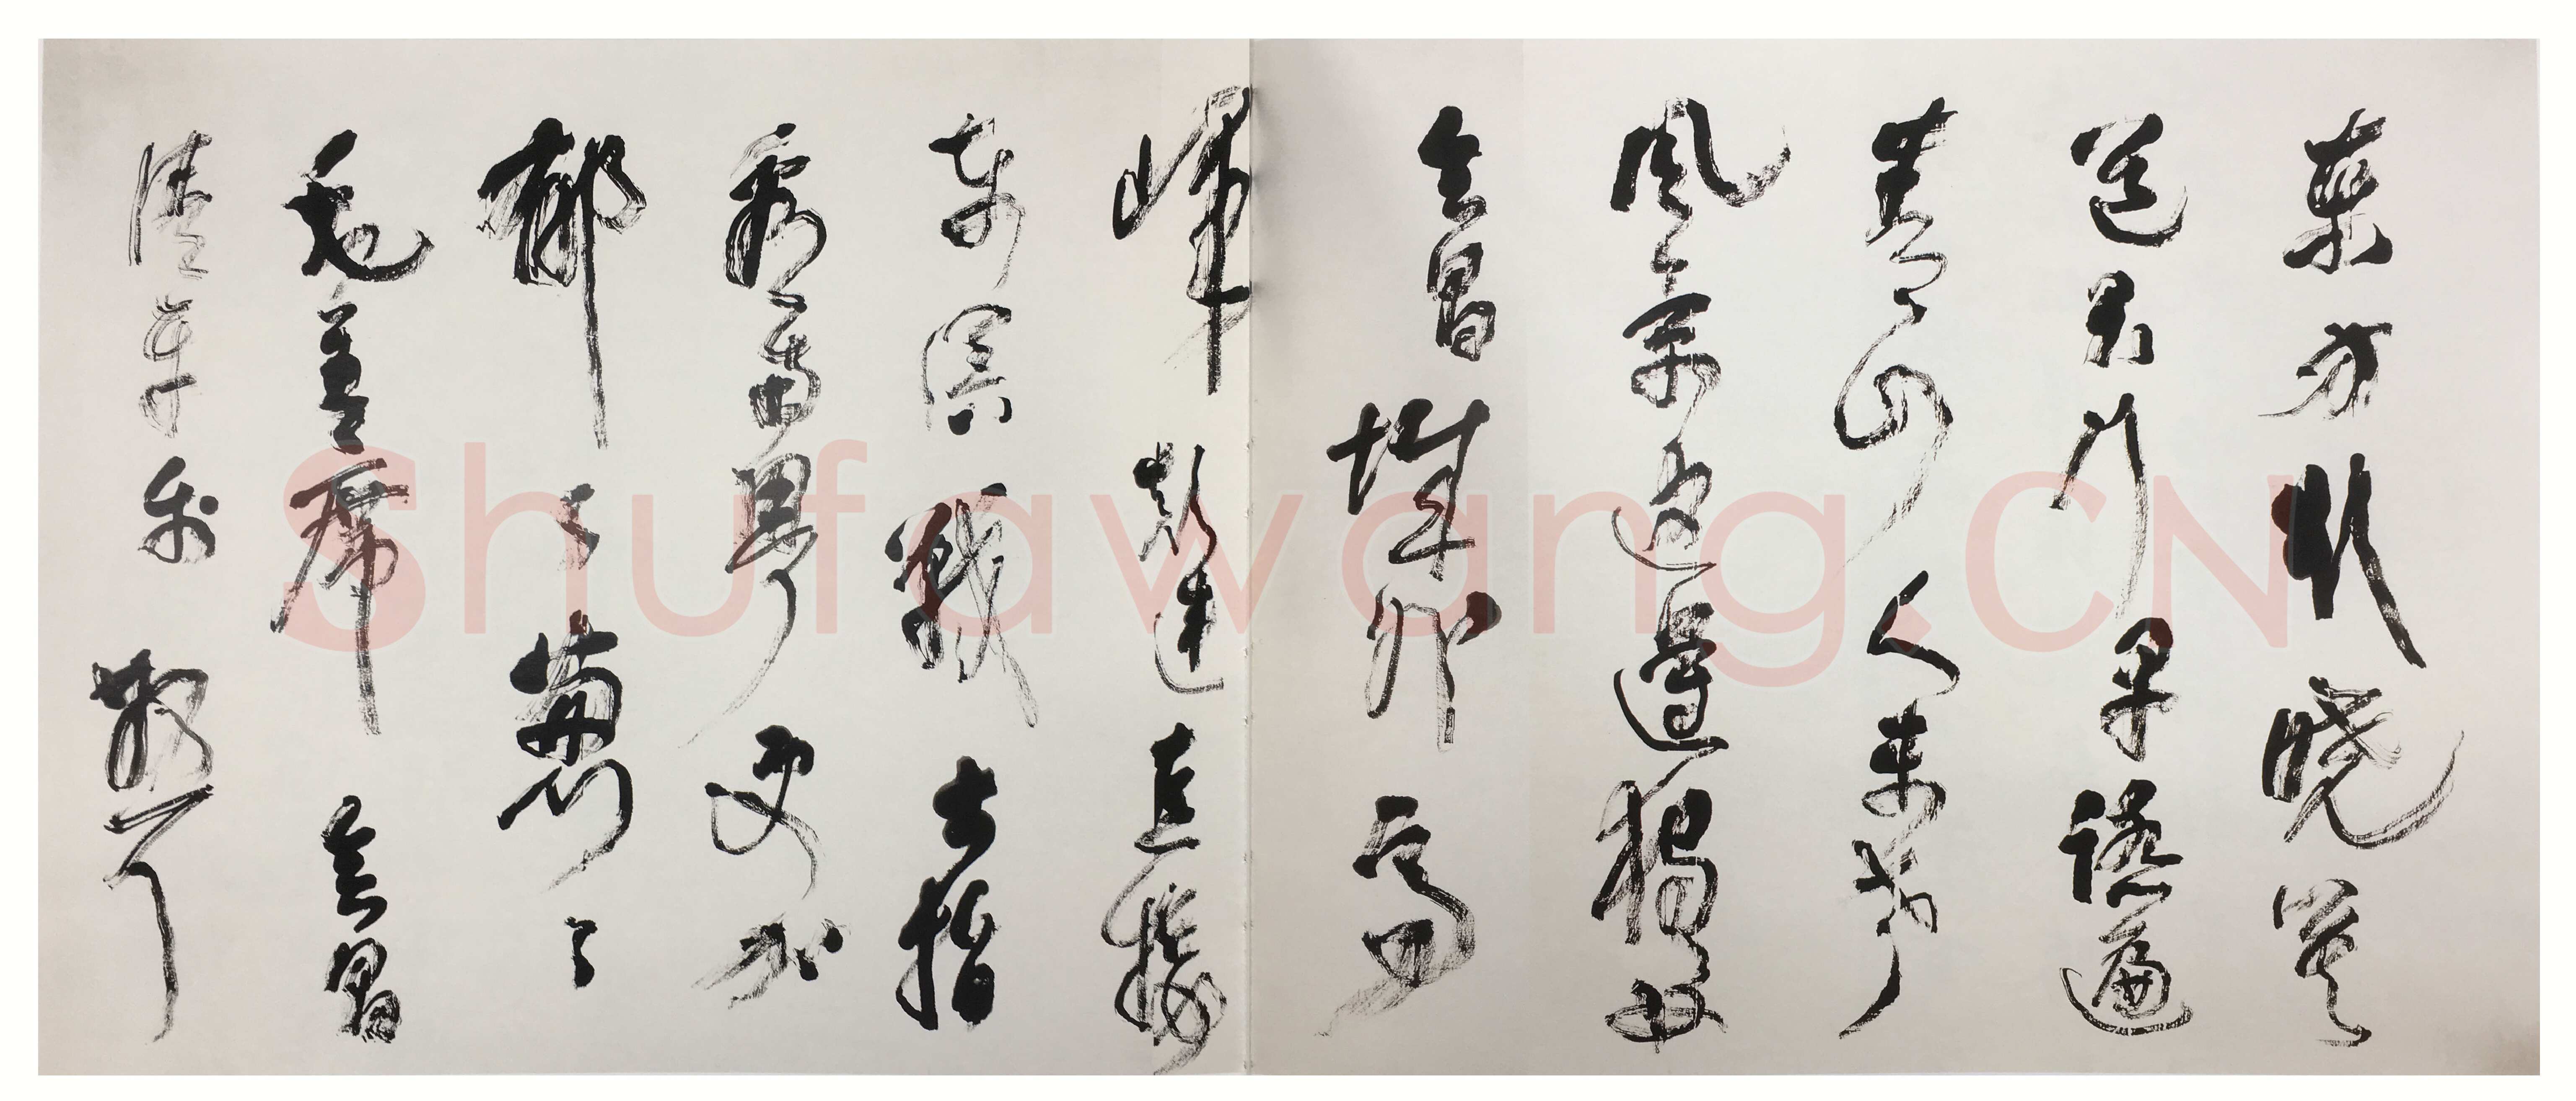 東方欲曉莫
道君行早踏遍
青山人未老
風景這邊獨好
會昌城外高
峰顛連直接
東溟戰士指
看南粵更加
郁々蔥々
毛主席會昌
清平樂 散耳
Shufawang.CN